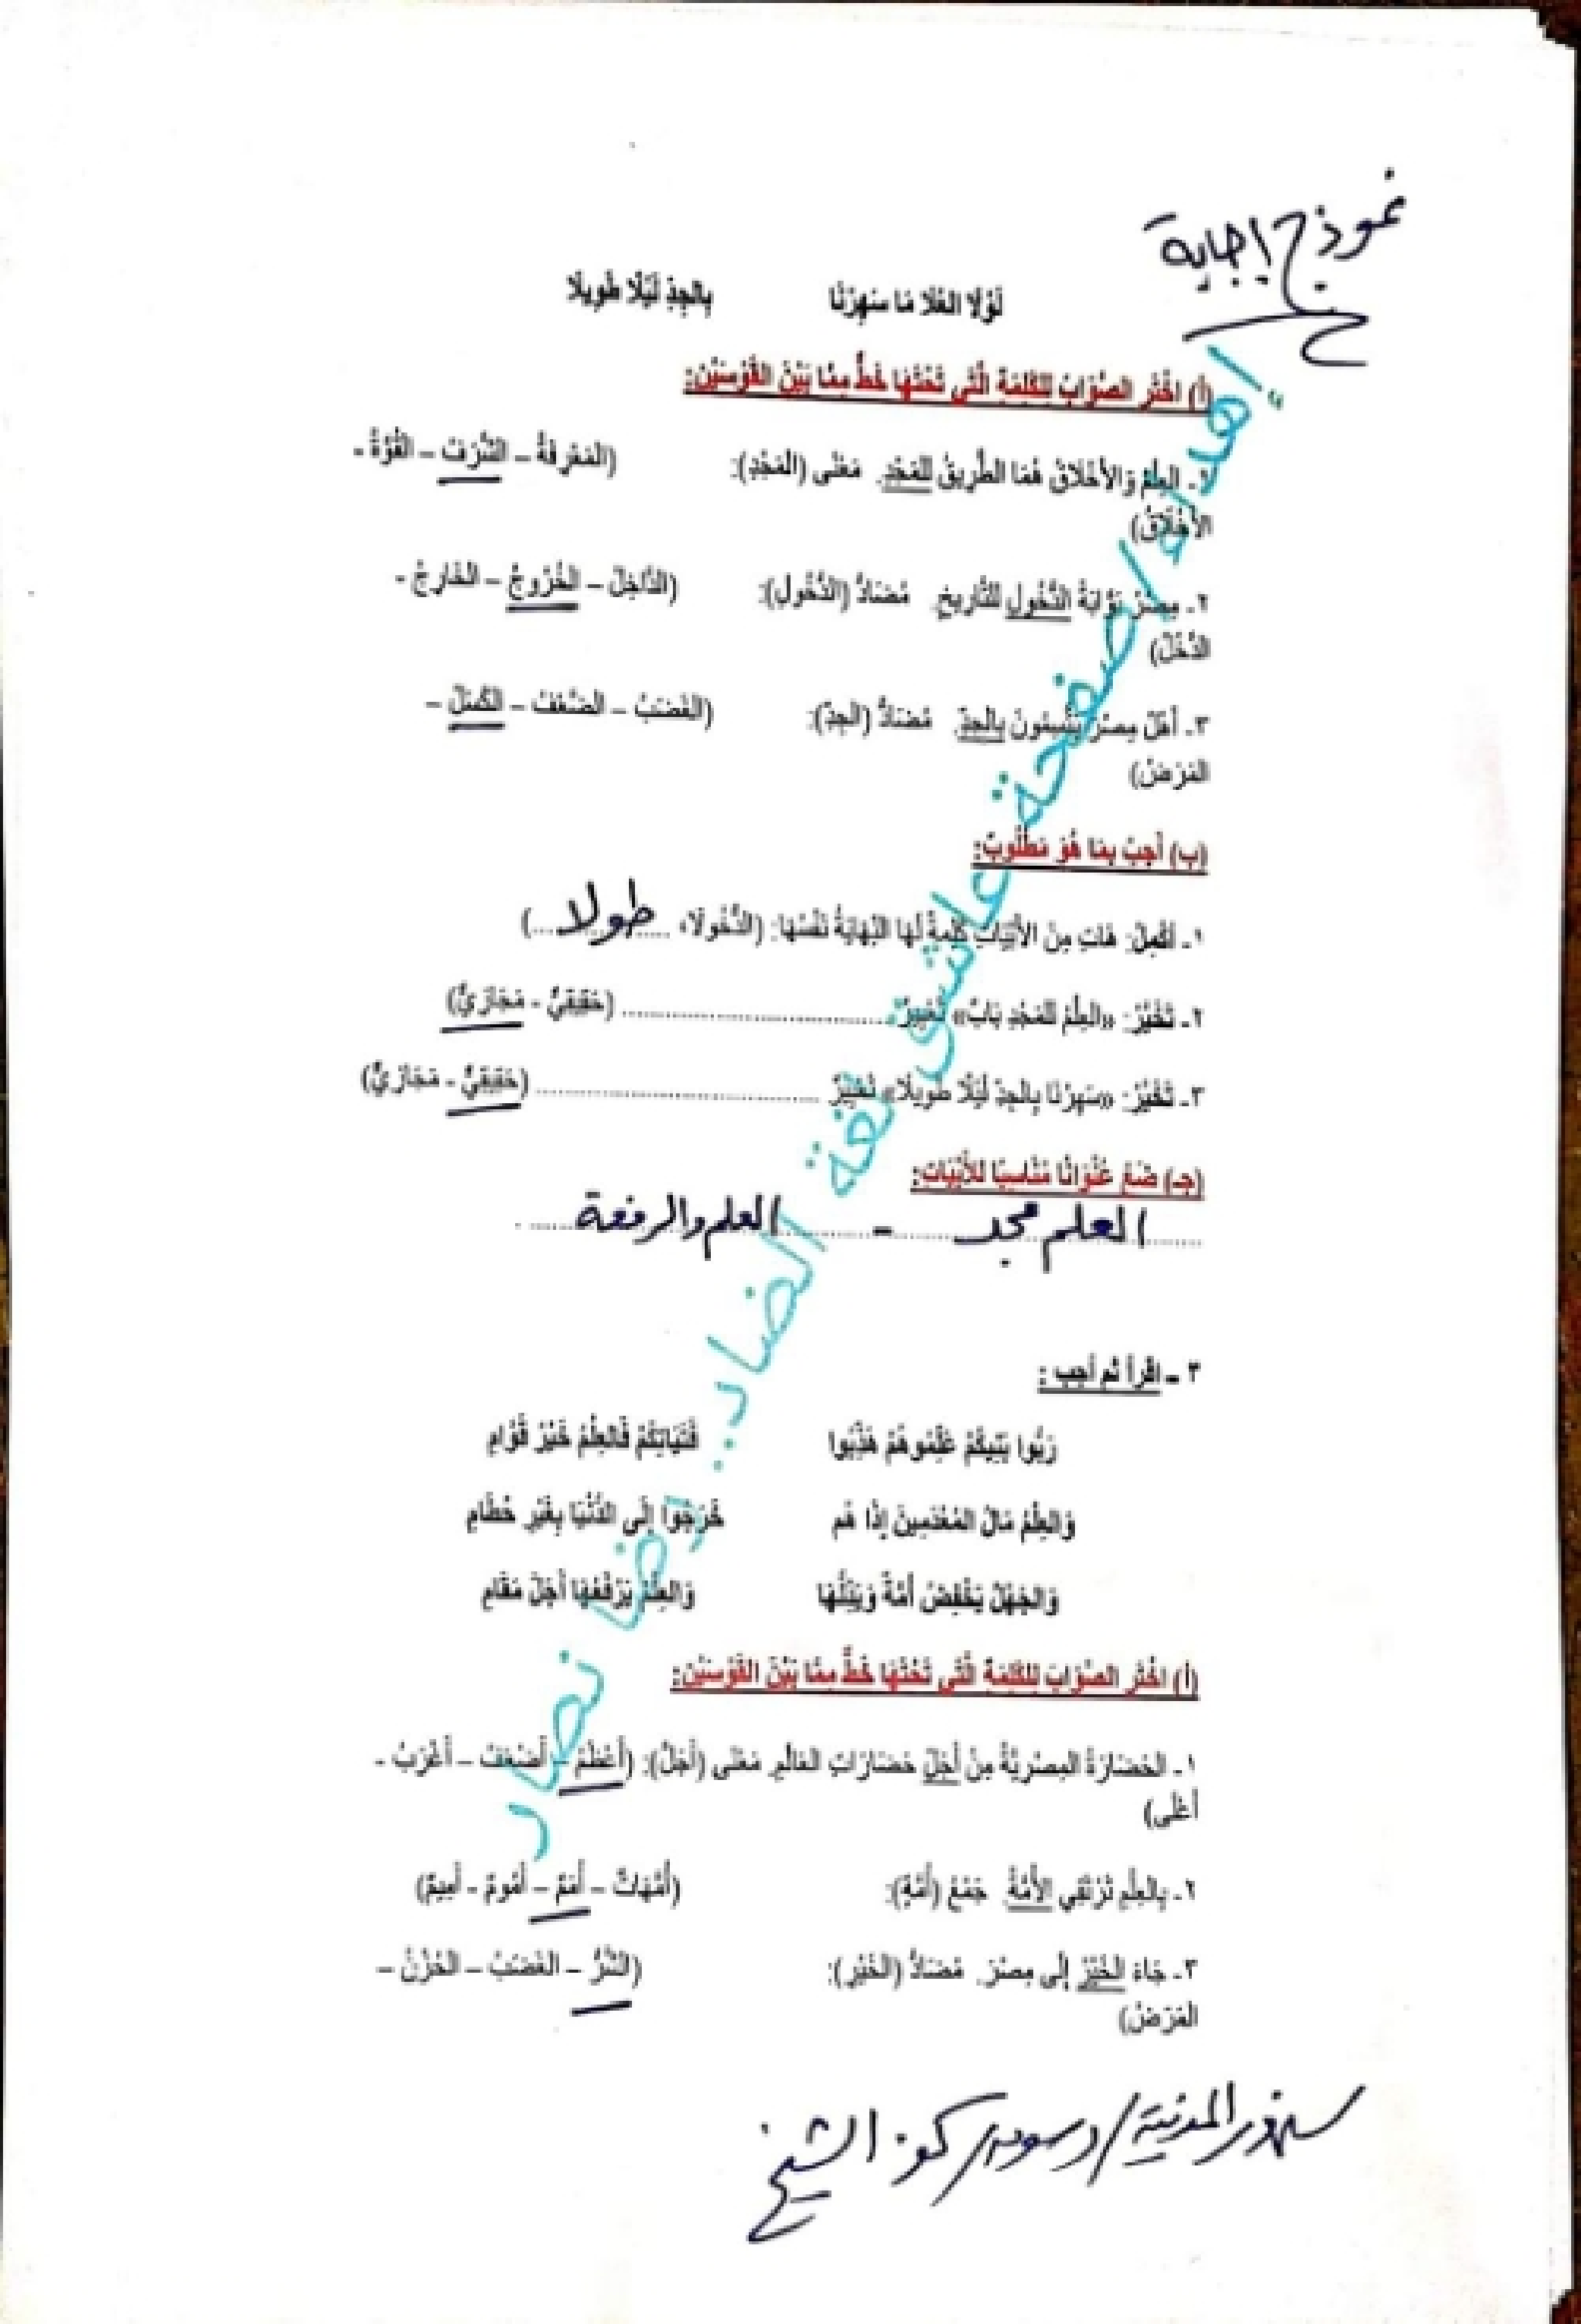 نموذج إجابة
لَوْلَا العُلَا مَا سَهِرْنَا بِالجِدِّ لَيْلًا طَوِيلَا
(أ) اخْتَرِ الصَّوَابَ لِلكَلِمَةِ الَّتِي تَحْتَهَا خَطٌّ مِمَّا بَيْنَ القَوْسَيْنِ:
١- العِلْمُ وَالأَخْلَاقُ هُمَا الطَّرِيقُ لِلمَجْدِ. مَعْنَى (المَجْدِ): (المَعْرِفَةُ – الشَّرَفُ – القُوَّةُ -
الأَخْلَاقُ)
٢- مِصْرُ بَوَّابَةُ الدُّخُولِ لِلتَّارِيخِ. مُضَادُّ (الدُّخُولِ): (الدَّاخِلُ – الخُرُوجُ – الخَارِجُ -
الدَّخْلُ)
٣- أَهْلُ مِصْرَ يَتَّسِمُونَ بِالجِدِّ. مُضَادُّ (الجِدِّ): (الغَضَبُ – الضَّعْفُ – الكَسَلُ –
المَرَضُ)
(ب) أَجِبْ بِمَا هُوَ مَطْلُوبٌ:
١- أَكْمِلْ: هَاتِ مِنَ الأَبْيَاتِ كَلِمَةً لَهَا النِّهَايَةُ نَفْسُهَا: (الدُّخُولَا، طولا ...)
٢- تَعْبِيرُ: «العِلْمُ لِلمَجْدِ بَابٌ» تَعْبِيرٌ ........ (حَقِيقِيٌّ - مَجَازِيٌّ)
٣- تَعْبِيرُ: «سَهِرْنَا بِالجِدِّ لَيْلًا طَوِيلَا» تَعْبِيرٌ ........ (حَقِيقِيٌّ - مَجَازِيٌّ)
(جـ) ضَعْ عُنْوَانًا مُنَاسِبًا لِلأَبْيَاتِ:
العلم مجد - العلم والرفعة
٣ – اقرأ ثم أجب :
رَبُّوا بَنِيكُمْ عَلِّمُوهُمْ هَذِّبُوا فَتَيَاتِكُمْ فَالعِلْمُ خَيْرُ قَوَامِ
وَالعِلْمُ مَالُ المُعْدَمِينَ إِذَا هُم خَرَجُوا إِلَى الدُّنْيَا بِغَيْرِ حُطَامِ
وَالجَهْلُ يَخْفِضُ أُمَّةً وَيُذِلُّهَا وَالعِلْمُ يَرْفَعُهَا أَجَلَّ مَقَامِ
(أ) اخْتَرِ الصَّوَابَ لِلكَلِمَةِ الَّتِي تَحْتَهَا خَطٌّ مِمَّا بَيْنَ القَوْسَيْنِ:
١- الحَضَارَةُ المِصْرِيَّةُ مِنْ أَجَلِّ حَضَارَاتِ العَالَمِ. مَعْنَى (أَجَلُّ): (أَعْظَمُ – أَضْعَفُ – أَغْرَبُ -
أَغْلَى)
٢- بِالعِلْمِ تَرْتَقِي الأُمَّةُ. جَمْعُ (أُمَّةٍ): (أُمَّهَاتٌ – أُمَمٌ – أُمُومٌ - أَمِيمٌ)
٣- جَاءَ الخَيْرُ إِلَى مِصْرَ. مُضَادُّ (الخَيْرِ): (الشَّرُّ – الغَضَبُ – الحُزْنُ –
المَرَضُ)
إهداء/صفحة عاشقى لغة الضاد.. رضا نصار
سنهور المدينة/دسوق/كفر الشيخ